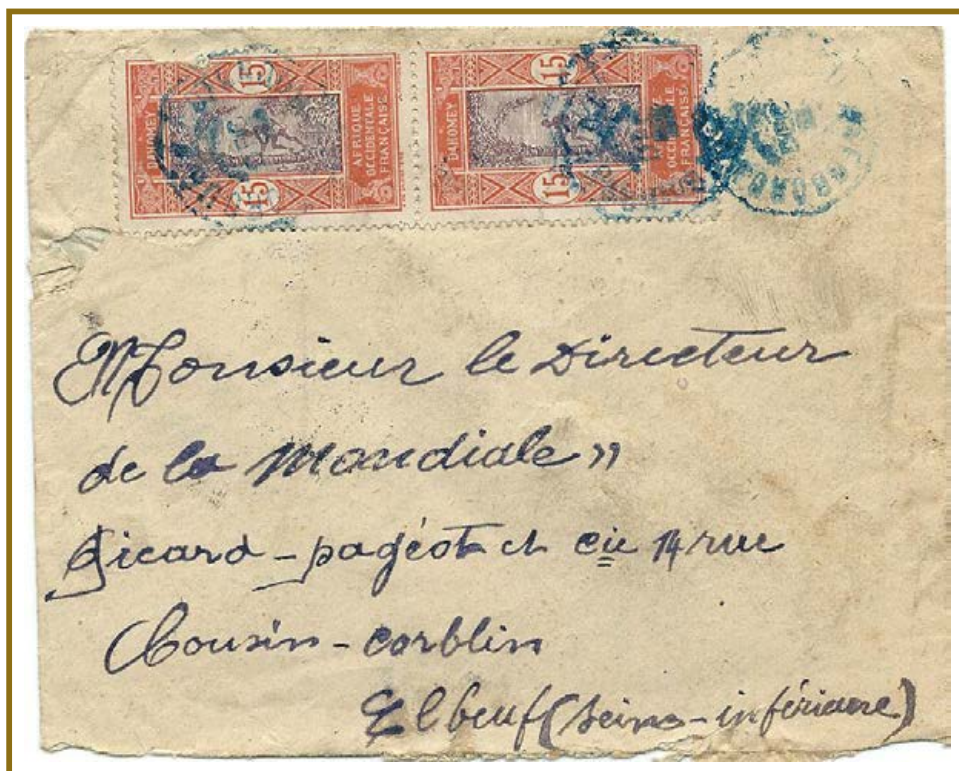 15 15
DAHOMEY
AFRIQUE
OCCIDENTALE
FRANÇAISE
15 15
DAHOMEY
AFRIQUE
OCCIDENTALE
FRANÇAISE
Monsieur le Directeur
de la Mondiale"
Sicard - pagéot et cie 14 rue
Cousin - corblin
Elbeuf (seine - inférieure)